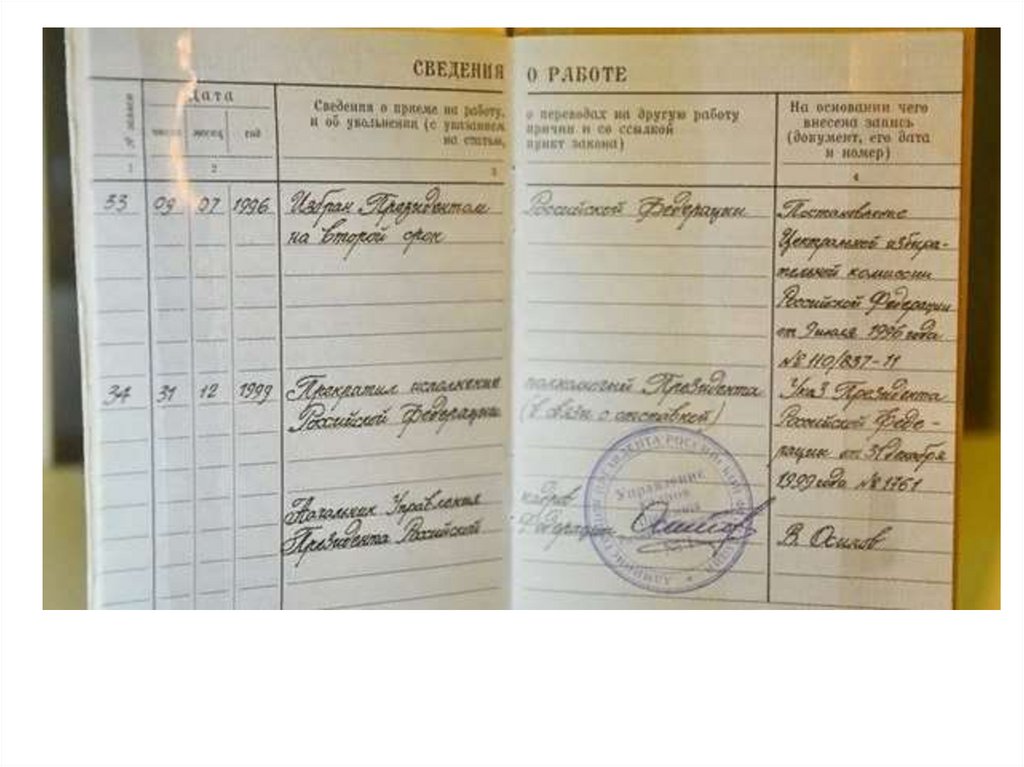 СВЕДЕНИЯ О РАБОТЕ
Дата
Сведения о приеме на работу, о переводах на другую работу
и об увольнении (с указанием причин и со ссылкой
на статью, пункт закона)
На основании чего
внесена запись
(документ, его дата
и номер)
число месяц год
1 2 3 4
33 09 07 1996 Избран Президентом Российской Федерации
на второй срок
Постановление
Центральной избира-
тельной комиссии
Российской Федерации
от 9 июля 1996 года
№ 110/837-11
34 31 12 1999 Прекратил исполнение полномочий Президента
Российской Федерации (в связи с отставкой)
Указ Президента
Российской Феде-
рации от 31 декабря
1999 года № 1761
Начальник Управления кадров
Президента Российской Федерации
В. Осипов
Управление
кадров